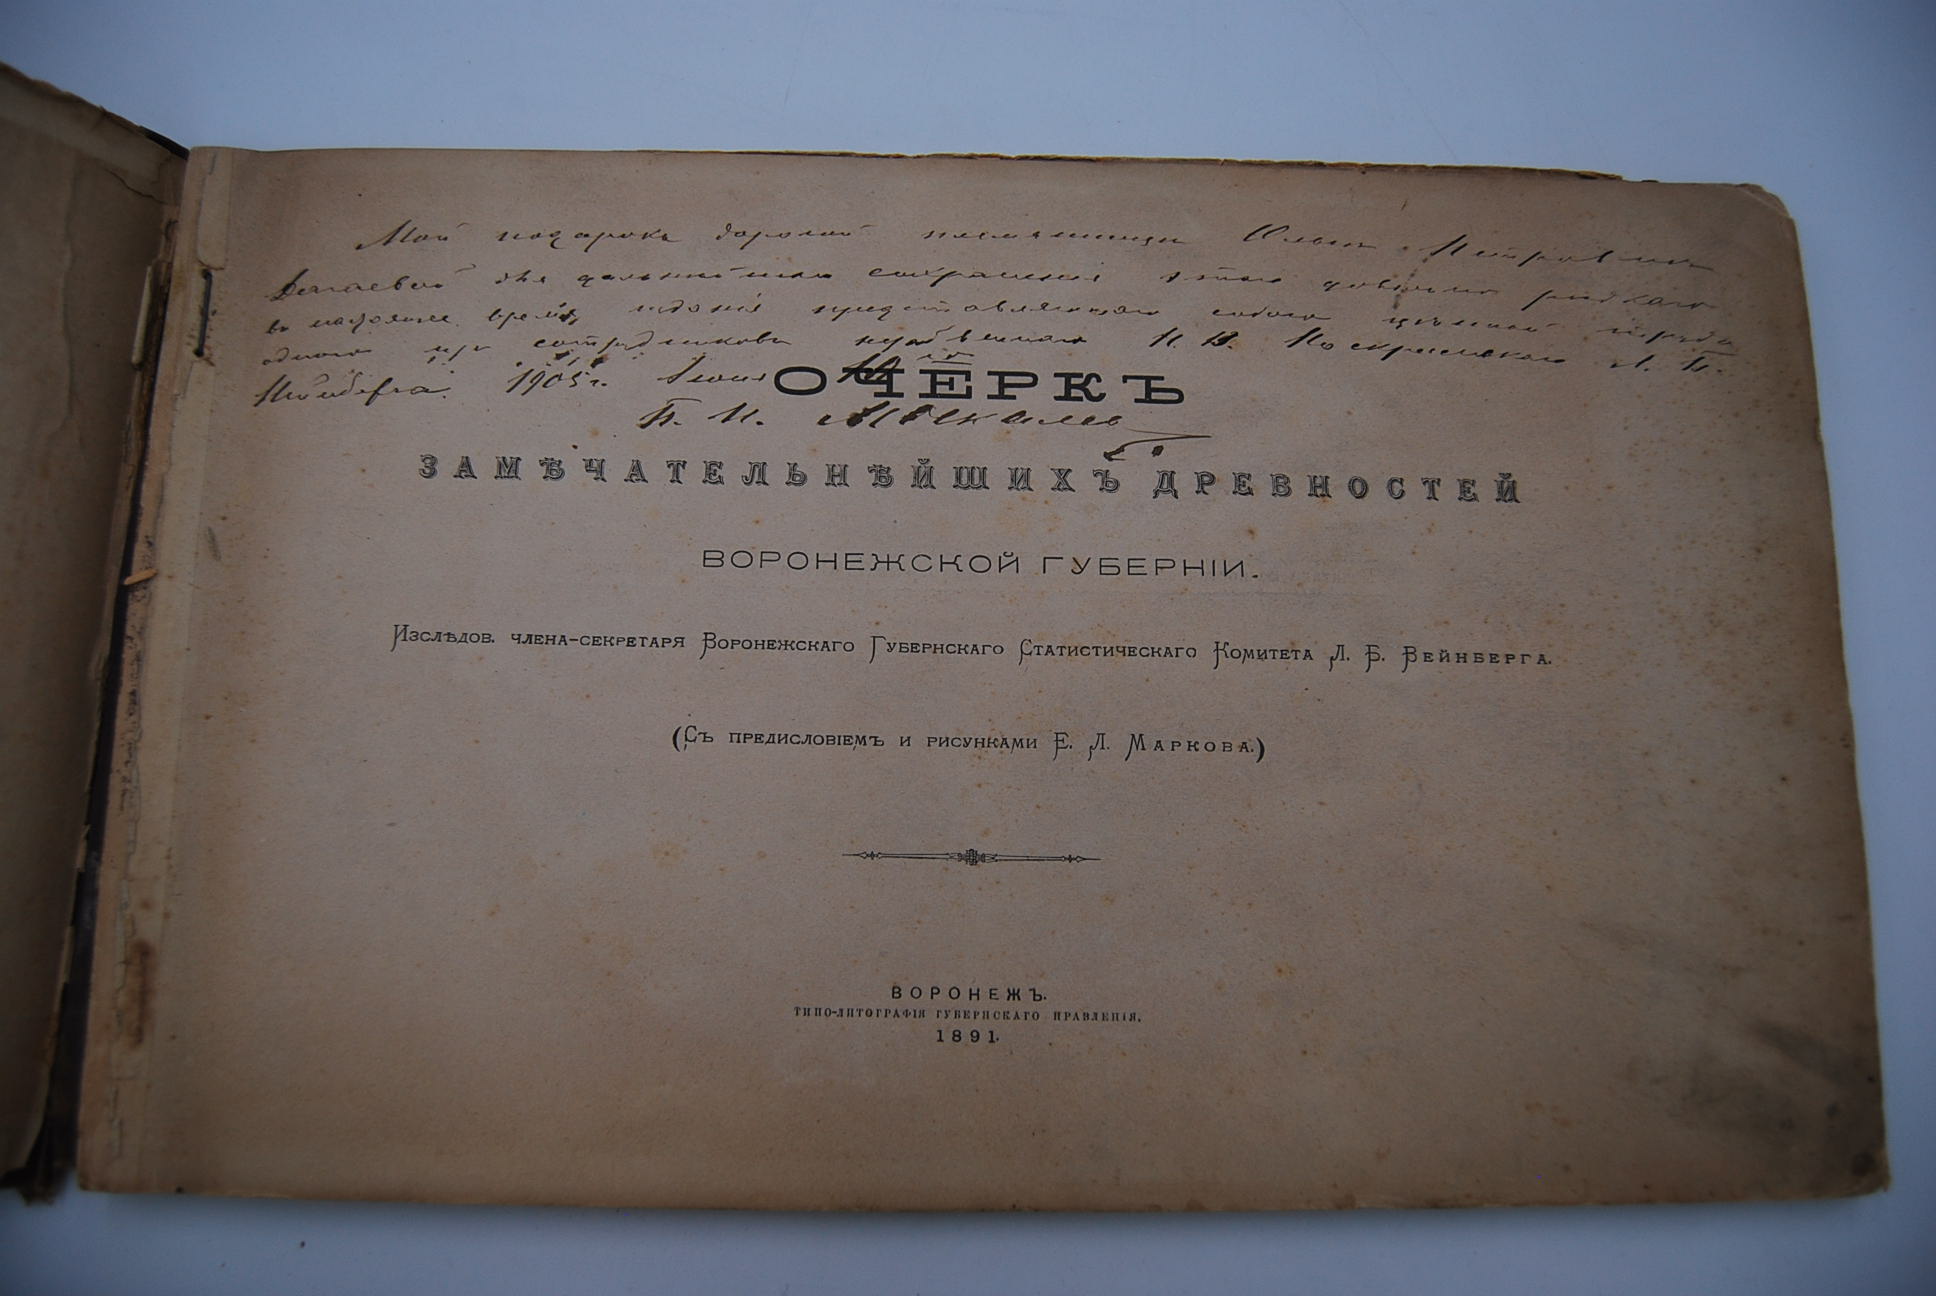 Мой подарокъ дорогой племянницѣ Ольгѣ Петровнѣ
для дальнѣйшаго сохраненія этого довольно рѣдкаго
въ настоящее время изданія представляющаго собою цѣнный
одного
1905 г. Іюня
ОЧЕРКЪ
ЗАМѢЧАТЕЛЬНѢЙШИХЪ ДРЕВНОСТЕЙ
ВОРОНЕЖСКОЙ ГУБЕРНІИ.
Изслѣдов. члена-секретаря Воронежскаго Губернскаго Статистическаго Комитета Л. Б. Вейнберга.
(Съ предисловіемъ и рисунками Е. Л. Маркова.)
ВОРОНЕЖЪ.
ТИПО-ЛИТОГРАФІЯ ГУБЕРНСКАГО ПРАВЛЕНІЯ.
1891.